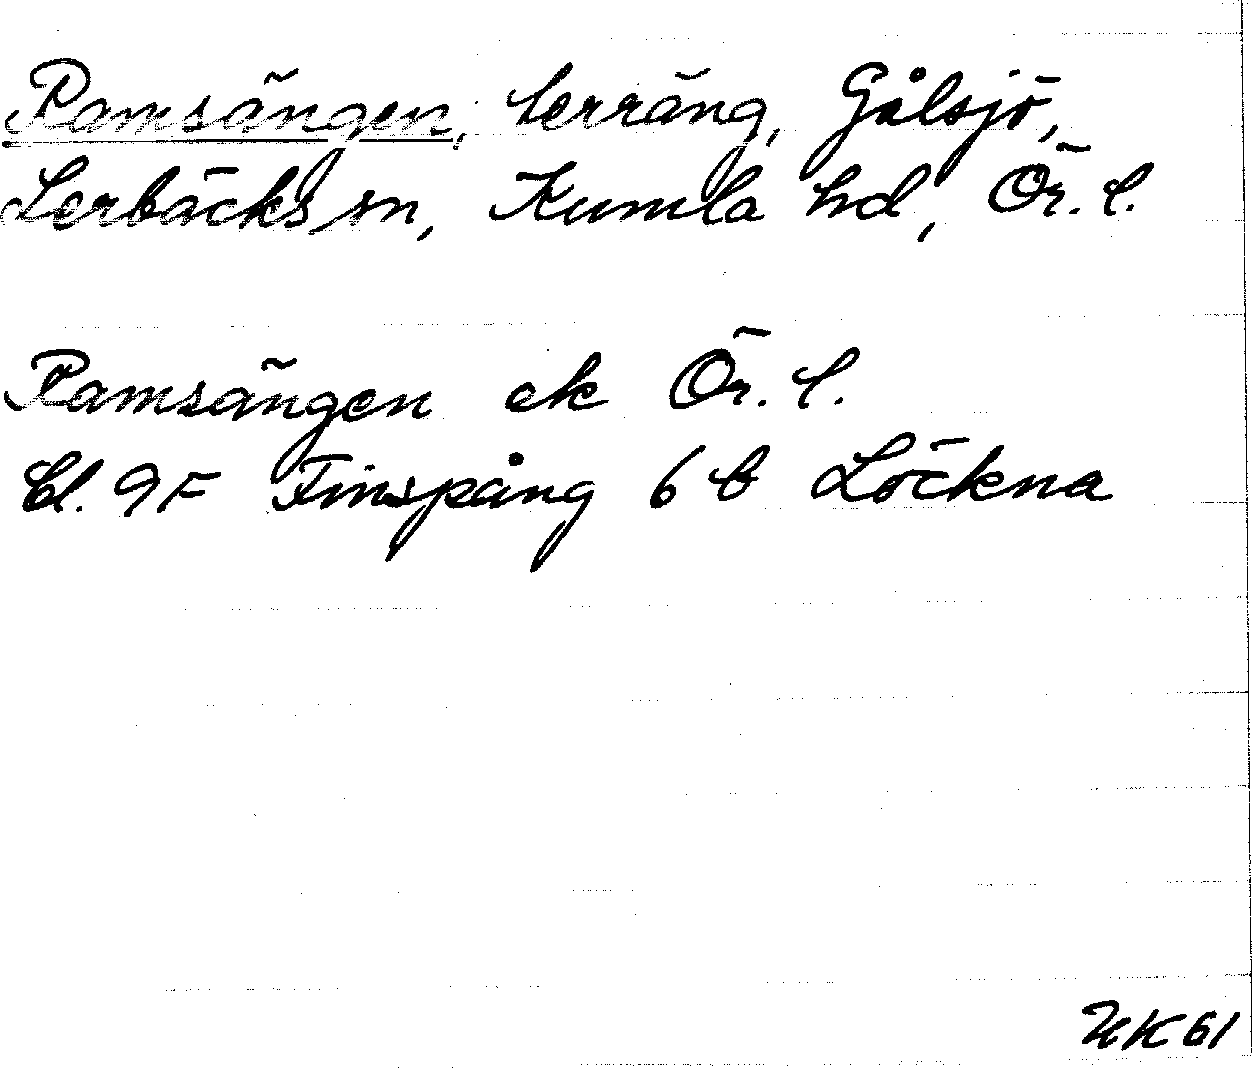 Ramsängen, terräng, Gålsjö,
Lerbäcks sn, Kumla hd, Ör. l.
Ramsängen ek Ör. l.
Bl. 9F Finspång 6 b Löckna
HK 61